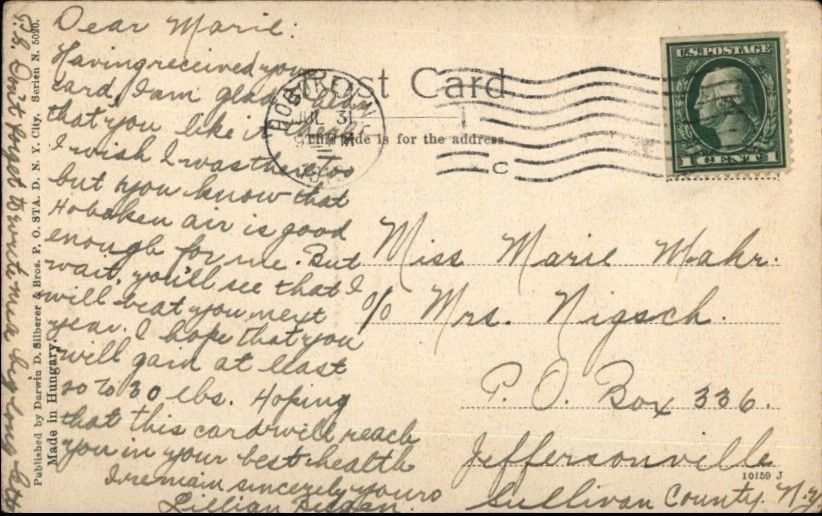 Dear Marie:
Having received your
card, I am glad to hear
that you like it there
I wish I was there too
but you know that
Hoboken air is good
enough for me. But
wait, you'll see that I
will beat you next
year. I hope that you
will gain at least
20 to 30 lbs. Hoping
that this card will reach
you in your best health
I remain sincerely yours
Lillian
P.S. Don't forget to write me a big long
Published by Darwin D. Silberer & Bros. P. O. STA. D. N. Y. City. Serien N. 5020.
Made in Hungary.
Post Card
This side is for the address
HOBOKEN
JUL 31
C
U.S. POSTAGE
1 CENT 1
Miss Marie Mahr.
c/o Mrs. Nigsch.
P. O. Box 336.
Jeffersonville
Sullivan County. N.Y.
10159 J